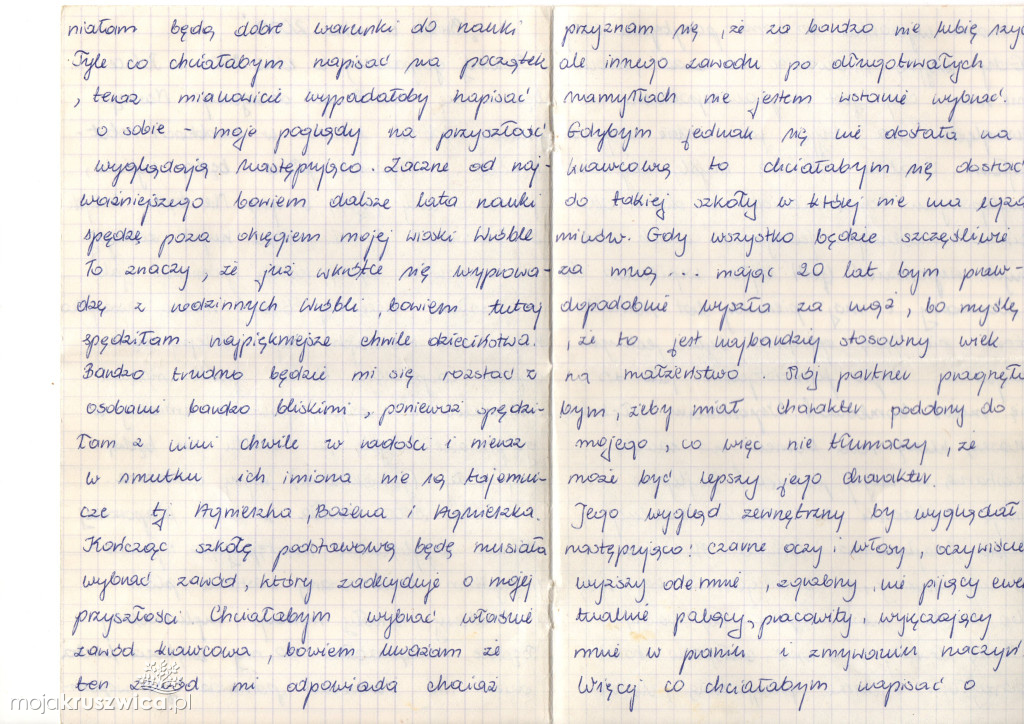 miałam będą dobre warunki do nauki
Tyle co chciałabym napisać na początek
, teraz mianowicie wypadałoby napisać
o sobie - moje poglądy na przyszłość
wyglądają następująco. Zacznę od naj-
ważniejszego bowiem dalsze lata nauki
spędzę poza okręgiem mojej wioski Wróble
To znaczy, że już wkrótce się wyprowa-
dzę z rodzinnych Wróbli, bowiem tutaj
spędziłam najpiękniejsze chwile dzieciństwa.
Bardzo trudno będzie mi się rozstać z
osobami bardzo bliskimi, ponieważ spędzi-
łam z nimi chwile w radości i nieraz
w smutku ich imiona nie są tajemni-
cze tj Agnieszka, Bożena i Agnieszka.
Kończąc szkołę podstawową będę musiała
wybrać zawód, który zadecyduje o mojej
przyszłości Chciałabym wybrać właśnie
zawód krawcowa, bowiem uważam że
ten zawód mi odpowiada chociaż
mojakruszwica.pl
przyznam się, że za bardzo nie lubię szyć
ale innego zawodu po długotrwałych
namysłach nie jestem wstanie wybrać.
Gdybym jednak się nie dostała na
krawcową to chciałabym się dostać
do takiej szkoły w której nie ma egza
minów. Gdy wszystko będzie szczęśliwie
za mną ... mając 20 lat bym praw-
dopodobnie wyszła za mąż, bo myślę
, że to jest najbardziej stosowny wiek
na małżeństwo. Mój partner pragnęła
bym, żeby miał charakter podobny do
mojego, co więc nie tłumaczy, że
może być lepszy jego charakter.
Jego wygląd zewnętrzny by wyglądał
następująco: czarne oczy i włosy, oczywiście
wyższy ode mnie, zgrabny, nie pijący ewe
tualnie palący, pracowity, wyręczający
mnie w praniu i zmywaniu naczyń.
Więcej co chciałabym napisać o